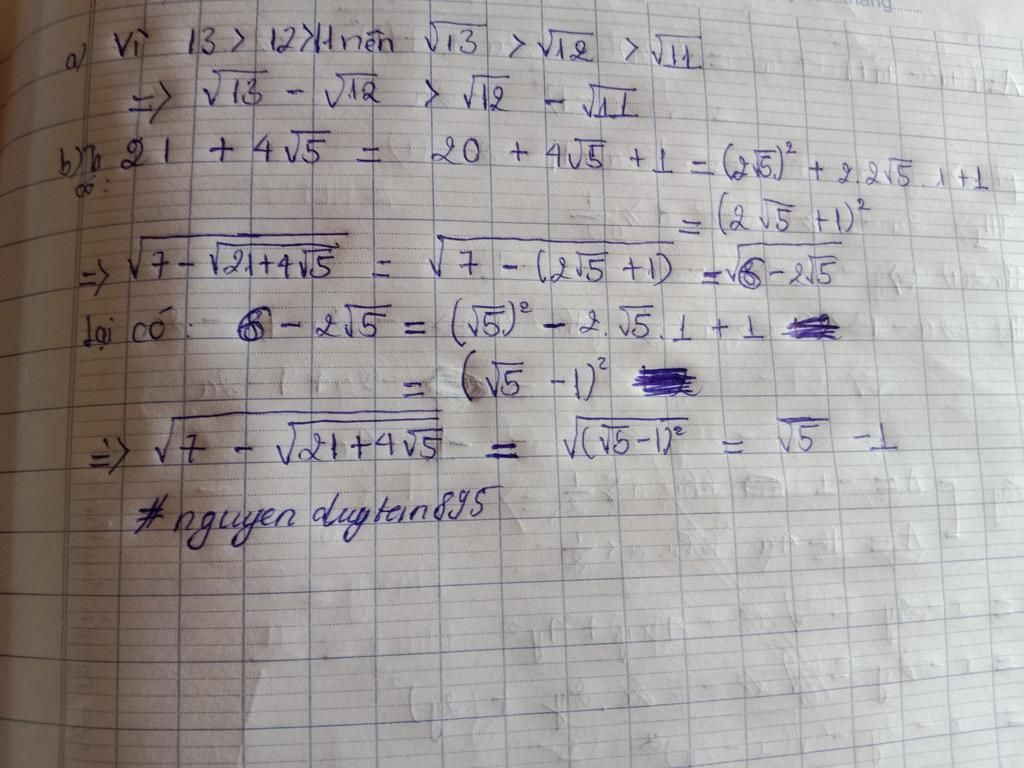 a) Vì 13 > 12 > 11 nên √13 > √12 > √11
=> √13 - √12 > √12 - √11
b) Ta có: 21 + 4√5 = 20 + 4√5 + 1 = (2√5)² + 2.2√5.1+1
= (2√5 +1)²
=> √(7 - √(21+4√5)) = √(7 - (2√5 +1)) = √(6 - 2√5)
Lại có: 6 - 2√5 = (√5)² - 2.√5.1 + 1
= (√5 - 1)²
=> √(7 - √(21+4√5)) = √((√5-1)²) = √5 - 1
# nguyen duytam895